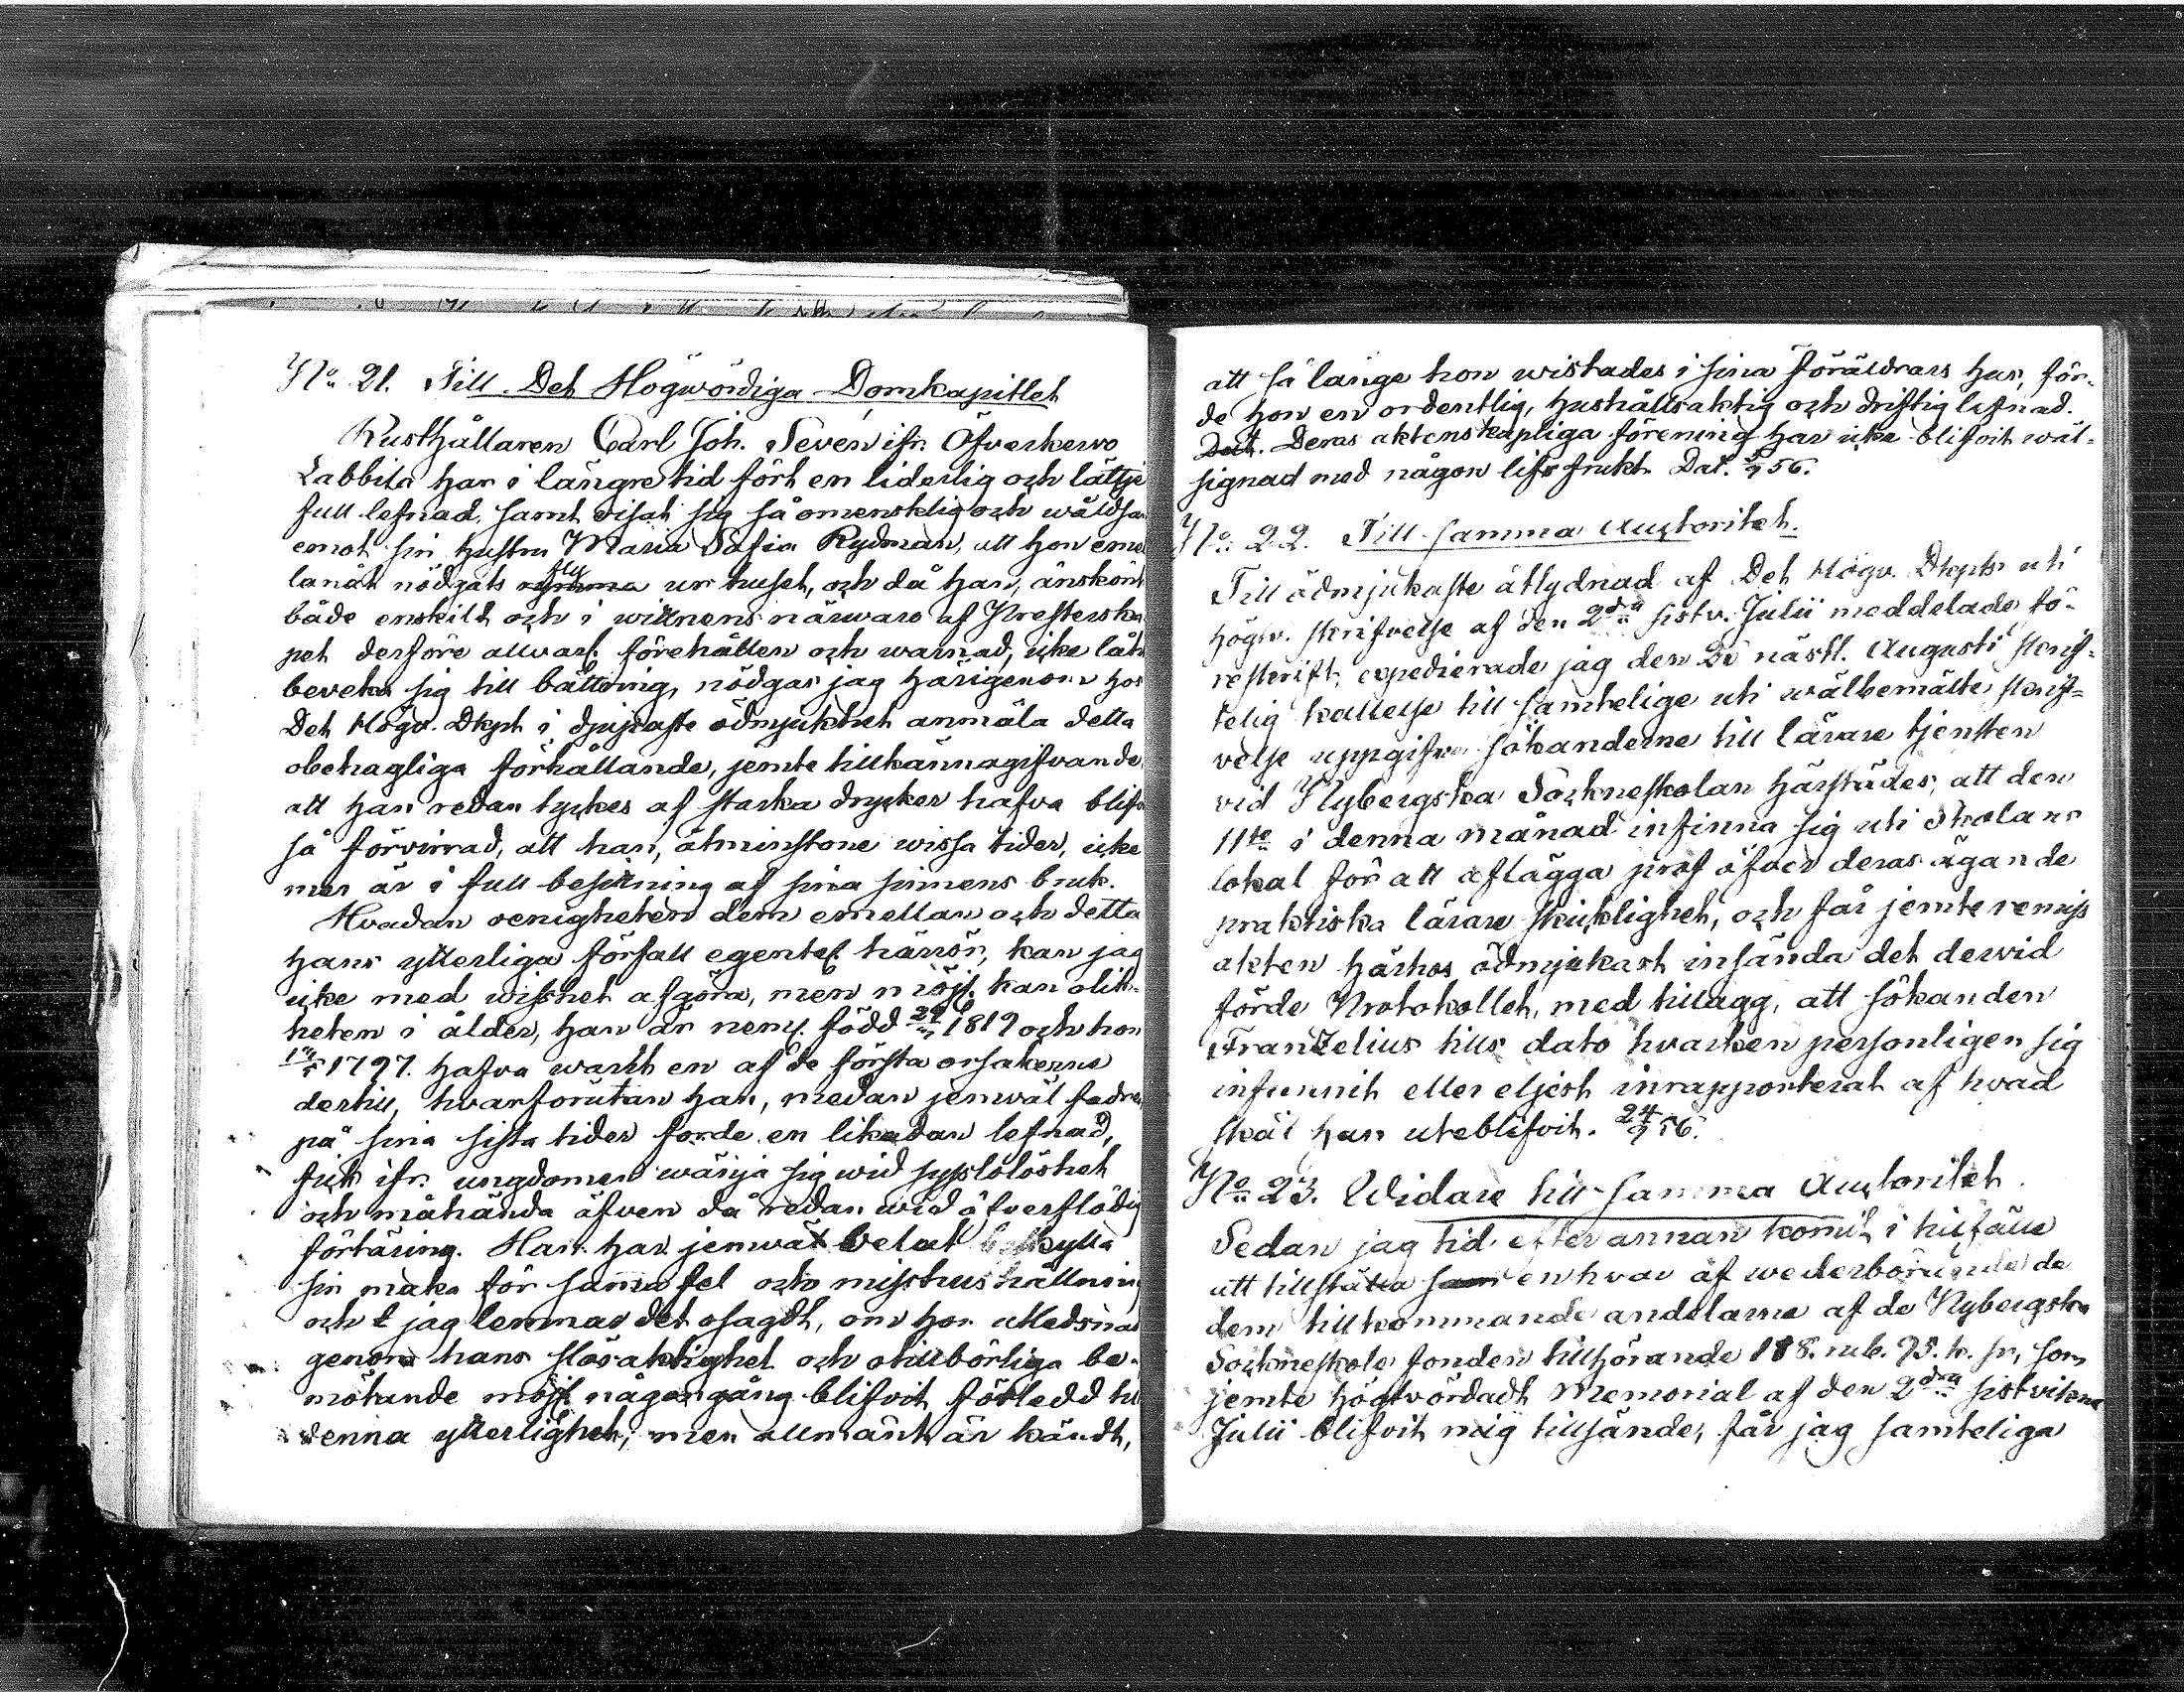 No 21. Till Det Högwördiga Domkapitlet
Rusthållaren Carl Joh. Sevén ifr. Öfverkervo
Labbila har i längre tid fört en liderlig och lättje
full lefnad, samt visat sig så omensklig och wåldsa
emot sin hustru Maria Sofia Rydman, att hon eme
lanåt nödgats fly ur huset, och då han, änskönt
både enskilt och i wittnens närwaro af Presterska
pet derföre allvarl. förehållen och warnad, icke låt
beveka sig till bättring, nödgas jag härigenom hos
Det Högv. Dkpt i djupaste ödmjukhet anmäla detta
obehagliga förhållande, jemte tillkännagifvande,
att han redan tyckes af starka drycker hafva blifv
så förvirrad, att han, åtminstone wissa tider, icke
mer är i full besittning af sina sinnens bruk.
Hvadan oenigheten dem emellan och detta
hans ytterliga förfall egentel. härrör, kan jag
icke med wisshet afgöra, men möjl. kan olik-
heten i ålder, han är neml. född 1819 och hon
1797. hafva warit en af de första orsakerne
dertill, hvarförutan han, medan jemwäl fadre
på sina sista tider förde en likadan lefnad,
fick ifr. ungdomen wänja sig wid sysslolöshet
och måhända äfven då redan wid öfverflödig
förtäring. Han har jemwäl velat beskylla
sin maka för samma fel och misshushållning
och jag lemnar det osagdt, om hon utledsnad
genom hans slösaktighet och otillbörliga be-
mötande möjl. någongång blifvit förledd till
denna ytterlighet; men allmänt är kändt,
att så länge hon wistades i sina föräldrars hus, för-
de hon en ordentlig, hushållsaktig och driftig lefnad.
Dat. Deras äktenskapliga förening har icke blifvit wäl-
signad med någon lifsfrukt. Dat. 56.
No 22. Till samma Auctoritet.
Till ödmjukaste åtlydnad af Det Högv. Dkpts uti
högtv. skrifvelse af den 2dra sistv. Julii meddelade fö-
reskrift, expedierade jag den näst. Augusti skrift-
telig kallelse till samtelige uti wälbemälte skrif-
velse uppgifne sökanderne till lärare tjensten
vid Nybergska Sockneskolan härstädes, att den
11te i denna månad infinna sig uti Skolans
lokal för att aflägga prof öfver deras ägande
praktiska lärare skicklighet, och får jemte remiss
akten härhos ödmjukast insända det dervid
förde Protokollet, med tillägg, att sökanden
Franzelius tills dato hvarken personligen sig
infunnit eller eljest inrapporterat af hvad
skäl han uteblifvit. 24/9 56.
No 23. Widare till samma Auctoritet.
Sedan jag tid efter annan komit i tillfälle
att tillställa enhvar af wederbörande de
dem tillkommande andelarne af de Nybergska
Sockneskole fonden tillhörande 188. rub. 75. k. sr, som
jemte högtvördadt Memorial af den 2dra sistvikne
Julii blifvit mig tillsände, får jag samteliga